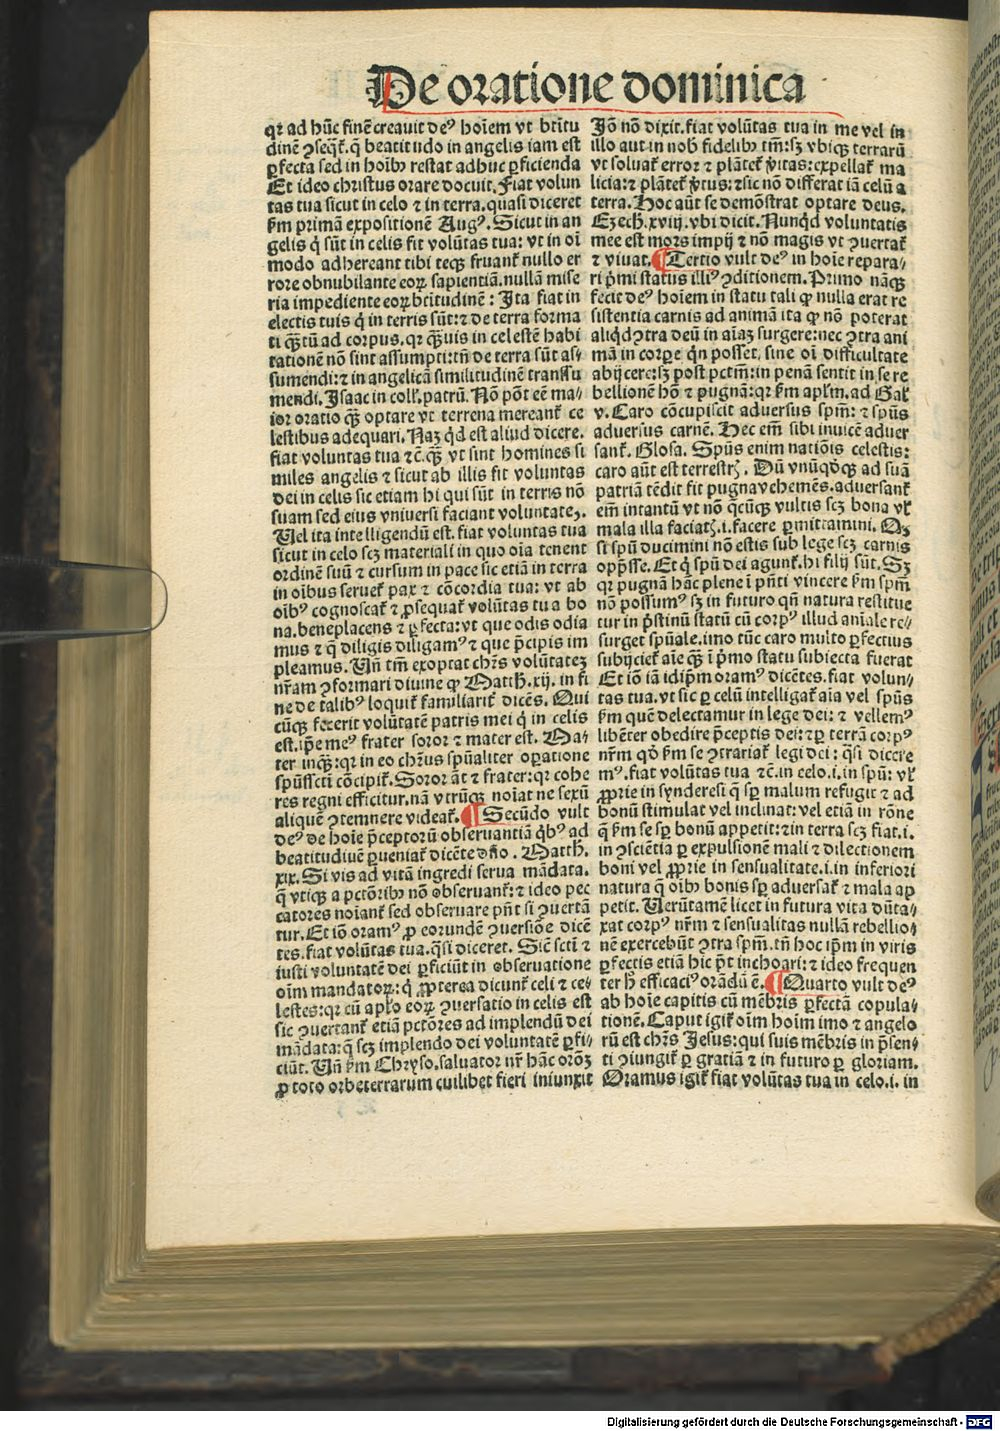 De oratione dominica
qꝛ ad hūc finē creauit deꝰ hoīem vt btītu
dinē ꝯseqͣt̉. q̄ beatitudo in angelis iam est
ꝑfecta sed in hoībꝰ restat adhuc ꝑficienda
Et ideo christus orare docuit. Fiat volun
tas tua sicut in celo ⁊ in terra. quasi diceret
ẜm primā expositionē Augꝰ. Sicut in an
gelis q̇ sūt in celis fit volūtas tua: vt in oī
modo adhereant tibi teqꝫ fruant̉ nullo er
rore obnubilante eoꝝ sapientiā. nullā mise
ria impediente eoꝝ btītudinē: Ita fiat in
electis tuis q̇ in terris sūt: ⁊ de terra forma
ti qͣꝫtū ad corpus. qꝛ qͣꝫuis in celestē habi
tationē nō sint assumpti: tn̄ de terra sūt as-
sumendi: ⁊ in angelicā similitudinē transfu
mendi. Isaac in coll̉. patrū. Nō pōt eē ma-
ior oratio qͣꝫ optare vt terrena mereant̉ ce
lestibus adequari. Naꝫ qͥd est aliud dicere.
fiat voluntas tua ⁊c̄. qͣꝫ vt sint homines si
miles angelis ⁊ sicut ab illis fit voluntas
dei in celis sic etiam hi qui sūt in terris nō
suam sed eius vniuersi faciant voluntateꝫ.
Uel ita intelligendū est. fiat voluntas tua
sicut in celo scꝫ materiali in quo oīa tenent
ordinē suū ⁊ cursum in pace sic etiā in terra
in oībus seruet̉ pax ⁊ cōcordia tua: vt ab
oībꝰ cognoscat̉ ⁊ ꝓsequat̉ volūtas tua bo
na. beneplacens ⁊ ꝑfecta: vt que odis odia
mus ⁊ q̄ diligis diligamꝰ ⁊ que p̄cipis im
pleamus. Un̄ tm̄ exoptat chr̄s volūtateꝫ
nr̄am ꝯformari diuine ꝙ Matth. xij. in fi
ne de talibꝰ loquit̉ familiarit̉ dicēs. Qui
cūqꝫ fecerit volūtatē patris mei q̇ in celis
est. ip̄e meꝰ frater soror ⁊ mater est. Ma-
ter inqͣꝫ: qꝛ in eo chr̄us spūaliter opatione
spūssctī cōcipit̉. Soror āt ⁊ frater: qꝛ cohe
res regni efficitur. nā vtrūqꝫ noīat ne sexū
aliquē ꝯtemnere videat̉. ¶ Secūdo vult
deꝰ de hoīe p̄ceptoꝝ obseruantiā qͥbꝰ ad
beatitudinē ꝑueniat̉ dicēte dn̄o. Matth.
xix. Si vis ad vitā ingredi serua mādata.
q̄ vtiqꝫ a pctōribꝰ nō obseruant̉: ⁊ ideo pec
catores noīant̉ sed obseruare pn̄t si ꝯuertā
tur. Et iō oramꝰ ꝓ eorundē ꝯuersiōe dicē
tes. fiat volūtas tua. qͣsi diceret. Sic̄ sctī ⁊
iusti voluntatē dei ꝑficiūt in obseruatione
oīm mandatoꝝ: q̇ ꝓpterea dicunt̉ celi ⁊ ce-
lestes: qꝛ cū apl̄o eoꝝ ꝯuersatio in celis est
sic ꝯuertant̉ etiā pctōres ad implendū dei
mādata: q̄ scꝫ implendo dei voluntatē ꝑfi-
ciūt. Un̄ ẜm Chryso. saluator nr̄ hāc orōꝫ
ꝓ toto orbe terrarum cuilibet fieri iniunxit
Iō nō dixit. fiat volūtas tua in me vel in
illo aut in nobꝭ fidelibꝰ tm̄: sꝫ vbiqꝫ terrarū
vt soluat̉ error ⁊ plātet̉ v̄itas: expellat̉ ma
licia: ⁊ plātet̉ v̄tus: ⁊ sic nō differat iā celū a
terra. Hoc aūt se demōstrat optare deus.
Ezech. xviij. vbi dicit. Nunqͥd voluntatis
mee est mors impij ⁊ nō magis vt ꝯuertat̉
⁊ viuat. ¶ Tertio vult deꝰ in hoīe repara-
ri p̄mi status illiꝰ ꝯditionem. Primo nāqꝫ
fecit deꝰ hoīem in statu tali ꝙ nulla erat re
sistentia carnis ad animā ita ꝙ nō poterat
aliqͥd ꝯtra deū in aīaꝫ surgere: nec ꝯtra ani
mā in corpe qͥn posset, sine oī difficultate
abijcere: sꝫ post pctm̄: in penā sentit in se re
bellionē hō ⁊ pugnā: qꝛ ẜm apl̄m. ad Gal̉
v. Caro cōcupiscit aduersus spm̄: ⁊ spūs
aduersus carnē. Hec em̄ sibi inuicē aduer
sant̉. Glosa. Spūs enim natiōis celestis:
caro aūt est terrestrꝭ. Dū vnūqͦdqꝫ ad suā
patriā tēdit fit pugna vehemēs. aduersant̉
em̄ intantū vt nō q̄cūqꝫ vultis scꝫ bona vl̉
mala illa faciatꝭ. i. facere ꝑmittamini. Qꝫ
si spū ducimini nō estis sub lege scꝫ carnis
opp̄sse. Et q̇ spū dei agunt̉. hi filij sūt. Sꝫ
qꝛ pugnā hāc plene ī pn̄ti vincere ẜm spm̄
nō possumꝰ sꝫ in futuro qn̄ natura restitue
tur in p̄stinū statū cū corpꝰ illud aīale re-
surget spūale. imo tūc caro multo ꝑfectius
subijciet̉ aīe qͣꝫ ī p̄mo statu subiecta fuerat
Et iō iā idip̄m oramꝰ dicētes. fiat volun-
tas tua. vt sic ꝑ celū intelligat̉ aīa vel spūs
ẜm quē delectamur in lege dei: ⁊ vellemꝰ
libēter obedire p̄ceptis dei: ⁊ ꝑ terrā corpꝰ
nr̄m qͦd ẜm se ꝯtrariat̉ legi dei: qͣsi dicere
mꝰ. fiat volūtas tua ⁊c̄. in celo. i. in spū: vl̉
ꝓprie in synderesi q̄ sꝑ malum refugit ⁊ ad
bonū stimulat vel inclinat: vel etiā in rōne
q̄ ẜm se sꝑ bonū appetit: ⁊ in terra scꝫ fiat. i.
in ꝯscientia ꝑ expulsionē mali ⁊ dilectionem
boni vel ꝓprie in sensualitate. i. in inferiori
natura q̄ oībꝰ bonis sꝑ aduersat̉ ⁊ mala ap
petit. Uerūtamē licet in futura vita dūta-
xat corpꝰ nr̄m ⁊ sensualitas nullā rebellio-
nē exercebūt ꝯtra spm̄. tn̄ hoc ip̄m in viris
ꝑfectis etiā hic p̄t inchoari: ⁊ ideo frequen
ter ⁊ efficaciꝰ orādū ē. ¶ Quarto vult deꝰ
ab hoīe capitis cū mēbris ꝑfectā copula-
tionē. Caput igit̉ oīm hoīm imo ⁊ angelo
rū est chr̄s Jesus: qui suis mēbris in p̄sen-
ti ꝯiungit̉ ꝑ gratiā ⁊ in futuro ꝑ gloriam.
Oramus igit̉ fiat volūtas tua in celo. i. in
Digitalisierung gefördert durch die Deutsche Forschungsgemeinschaft - DFG